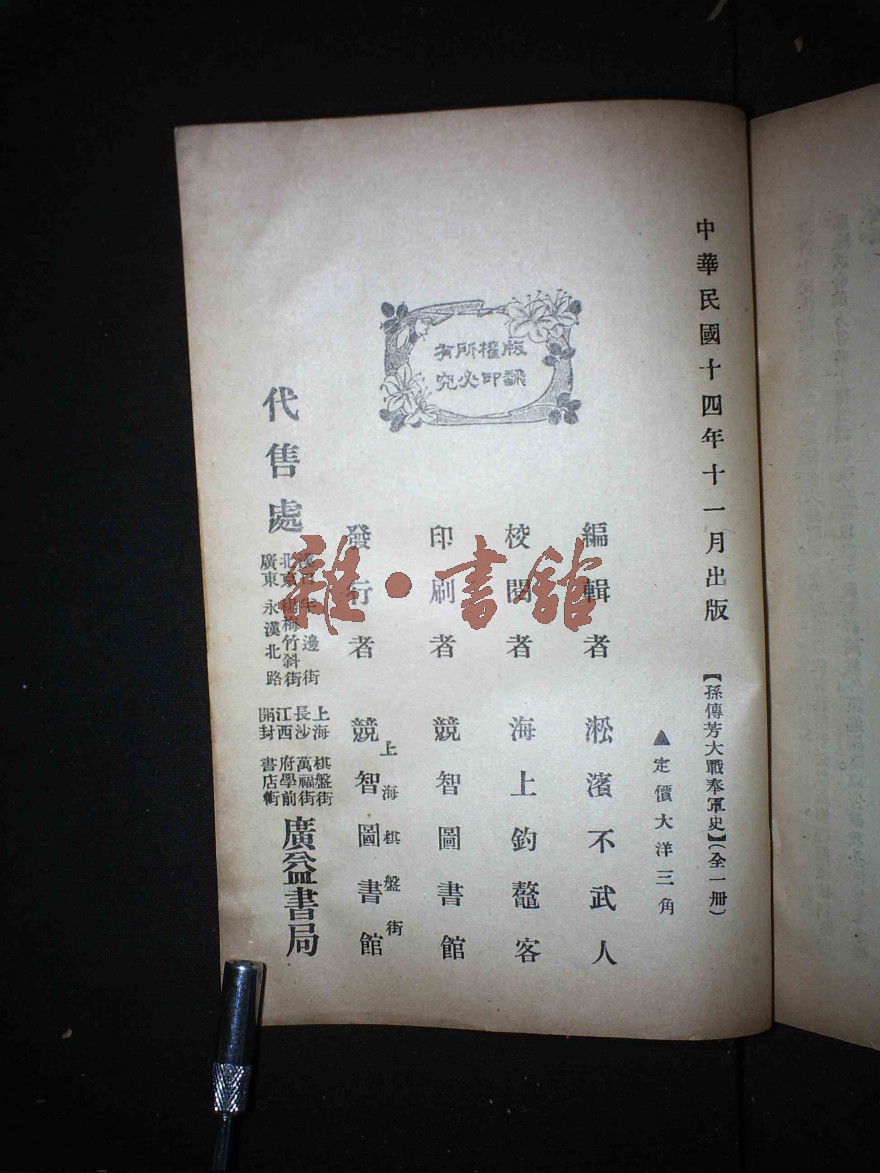 中華民國十四年十一月出版
【孫傳芳大戰奉軍史】(全一册)
▲定價大洋三角
編輯者 淞濱不武人
校閱者 海上釣鼇客
印刷者 競智圖書館
發行者 上海棋盤街 競智圖書館
版權所有
翻印必究
代售處
漢口半邊街
北京楊梅竹斜街
廣東永漢北路
上海棋盤街
長沙萬福街
江西府學前
開封書店街
廣益書局
雜·書館